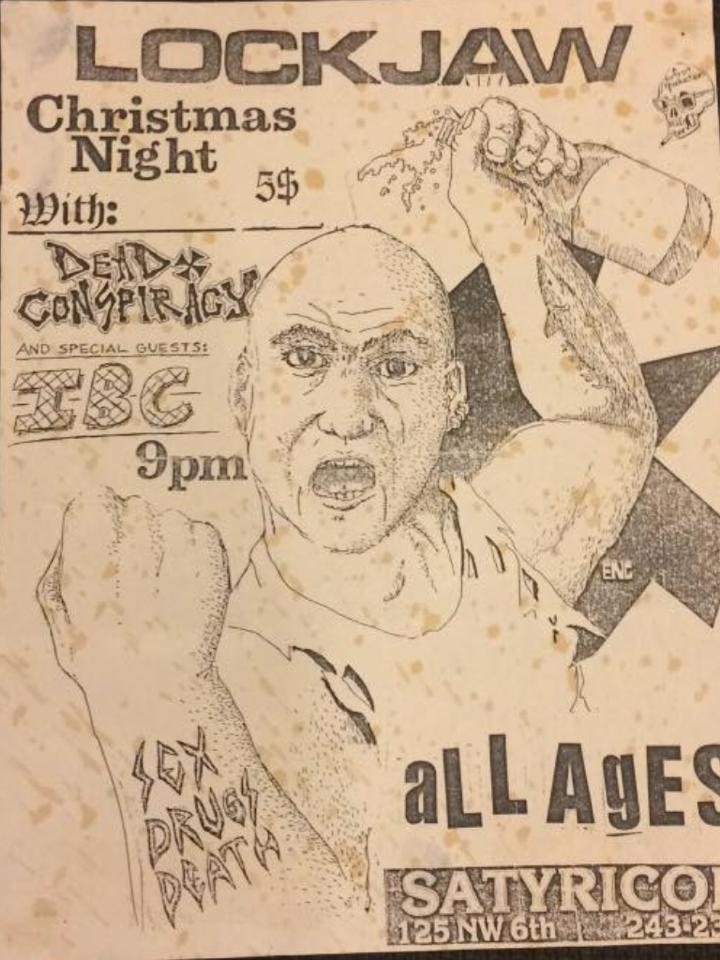 LOCKJAW
Christmas
Night
5$
With:
DEAD
CONSPIRACY
AND SPECIAL GUESTS:
IBC
9pm
ENG
SEX
DRUGS
DEATH
aLL AgES
SATYRICO
125 NW 6th 243-23